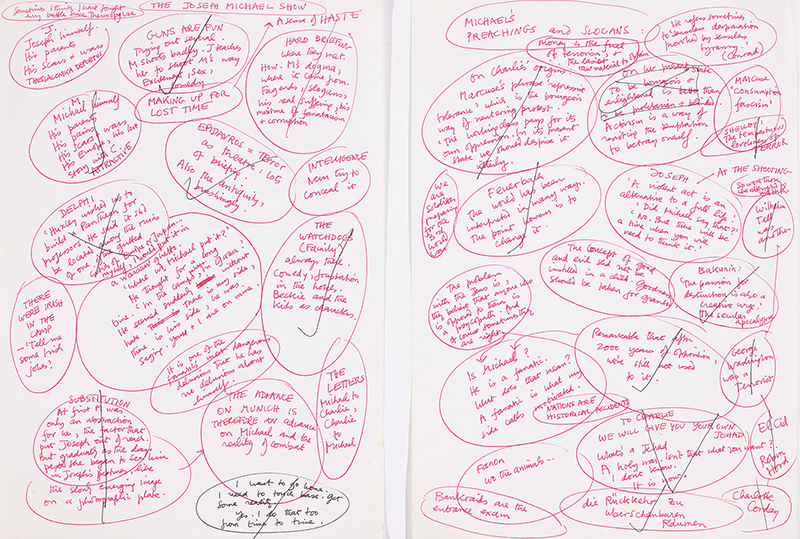 Sometimes I think I have fought
every battle since Thermopylae
THE JOSEPH MICHAEL SHOW
A sense of HASTE
J.
Joseph himself
His parents
His scars + wars
THESSALONIKA DEPORTEE
GUNS ARE FUN
Trying out sexual.
M shoots badly. J teaches
her to shoot M's way
Excitement, sex,
comedy
HARD BRIEFING
where they met.
How. M's dogma,
where it came from.
Fag ends, slogans,
his real suffering, his
mixture of fanaticism
+ corruption
MAKING UP FOR
LOST TIME
M.
Michael himself
His parents
His pains
His scars + wars
His Europe, his lost
story with C.
ATTRACTIVE
EPIDAVROS =
as theatre: lots
of briefing.
Also the antiquity,
INTELLIGENCE
Never try to
conceal it
DELPHI
'Huxley wished us to
build a Pantheon for
professors. He said it should
be located in the ruins
of one of the gutted
a Warsaw ghetto.'
'What would Michael put it?'
He thought for a long
time. 'In the camps in Gaza,'
he seemed suddenly without
there is your side,
there is his side, he was
saying. Yours + I are on mine.
THE
WATCHDOGS
(Family)
always there.
Comedy, frustration
in the hotels,
Beckie and the
Kids as crackers.
THERE
WERE IRISH
IN THE
CAMP
- 'Tell me
some Irish
jokes?'
It is one of the
fanatic's most dangerous
delusions that he has
no delusions about
himself.
SUBSTITUTION
At first it was
only an abstraction
for us, the factor that
put Joseph out of reach.
but gradually as the days
passed she began to see him
in Joseph's features, like
the slowly emerging image
on a photographic plate.
THE ADVANCE
ON MUNICH IS
THEREFORE AN ADVANCE
on Michael and the
reality of combat
THE
LETTERS
Michael to
Charlie,
Charlie
to
Michael
I want to go home.
I need to touch base. Get
some reality.
Yes. I do that too
from time to time.
MICHAEL'S
PREACHINGS and SLOGANS.
money is the fuel
of terrorism, +
the easiest
raw material to obtain
He refers sometimes
to 'senseless desperation
provoked by senseless
tyranny.'
(Conrad)
On Charlie's origins
Marcuse's phrase 'repressive
tolerance', which is the bourgeois
way of neutering protest.
'The working class pays for its
own oppression. In its present
state we should despise it
utterly.
On his present state
To be bourgeois +
enlightened is better than
to be proletarian + blind.
Activism is a way of
resisting the temptation
to betray oneself.
MARCUSE
'Consumption
fascism'
SHELLEY:
The tempestuous
loveliness of
TERROR
We
are
soldiers
preparing
for the
3rd
world
war
Feuerbach
The world has been
interpreted in many ways.
The point however is to
change it.
JOSEPH
AT THE SHOOTING
'A violent act is an
alternative to a full life.'
'Did Michael say that?'
'No. But there will be
a time when you will
need to think it.'
Wilhelm
Tell
was
another
The concept of good
and evil shd not be
instilled in a child. Goodness
should be taken for granted
Bakunin:
'The passion for
destruction is also a
creative urge.'
The secular
apocalypse
The problem
with the Jews is,
they believe that anyone who
is opposed to them is
a psychopath. And
of course sometimes they
are right
Remarkable that after
2000 years of oppression,
we're still not used
to it.
George
Washington
was a
Terrorist
Is Michael?
He is a fanatic.
What does that mean?
A fanatic is what my
side calls motivated.
NATIONS ARE
HISTORICAL ACCIDENTS
TO CHARLIE
WE WILL GIVE YOU YOUR OWN
JEHAD
What's a Jehad
A holy war. Isn't that what you want?
I don't know.
It is now.
El Cid
Robin
Hood
Fanon
We the animals...
Bank raids are the
entrance exam
die Rückkehr zu
überschaubaren
Räumen
Charlotte
Corday